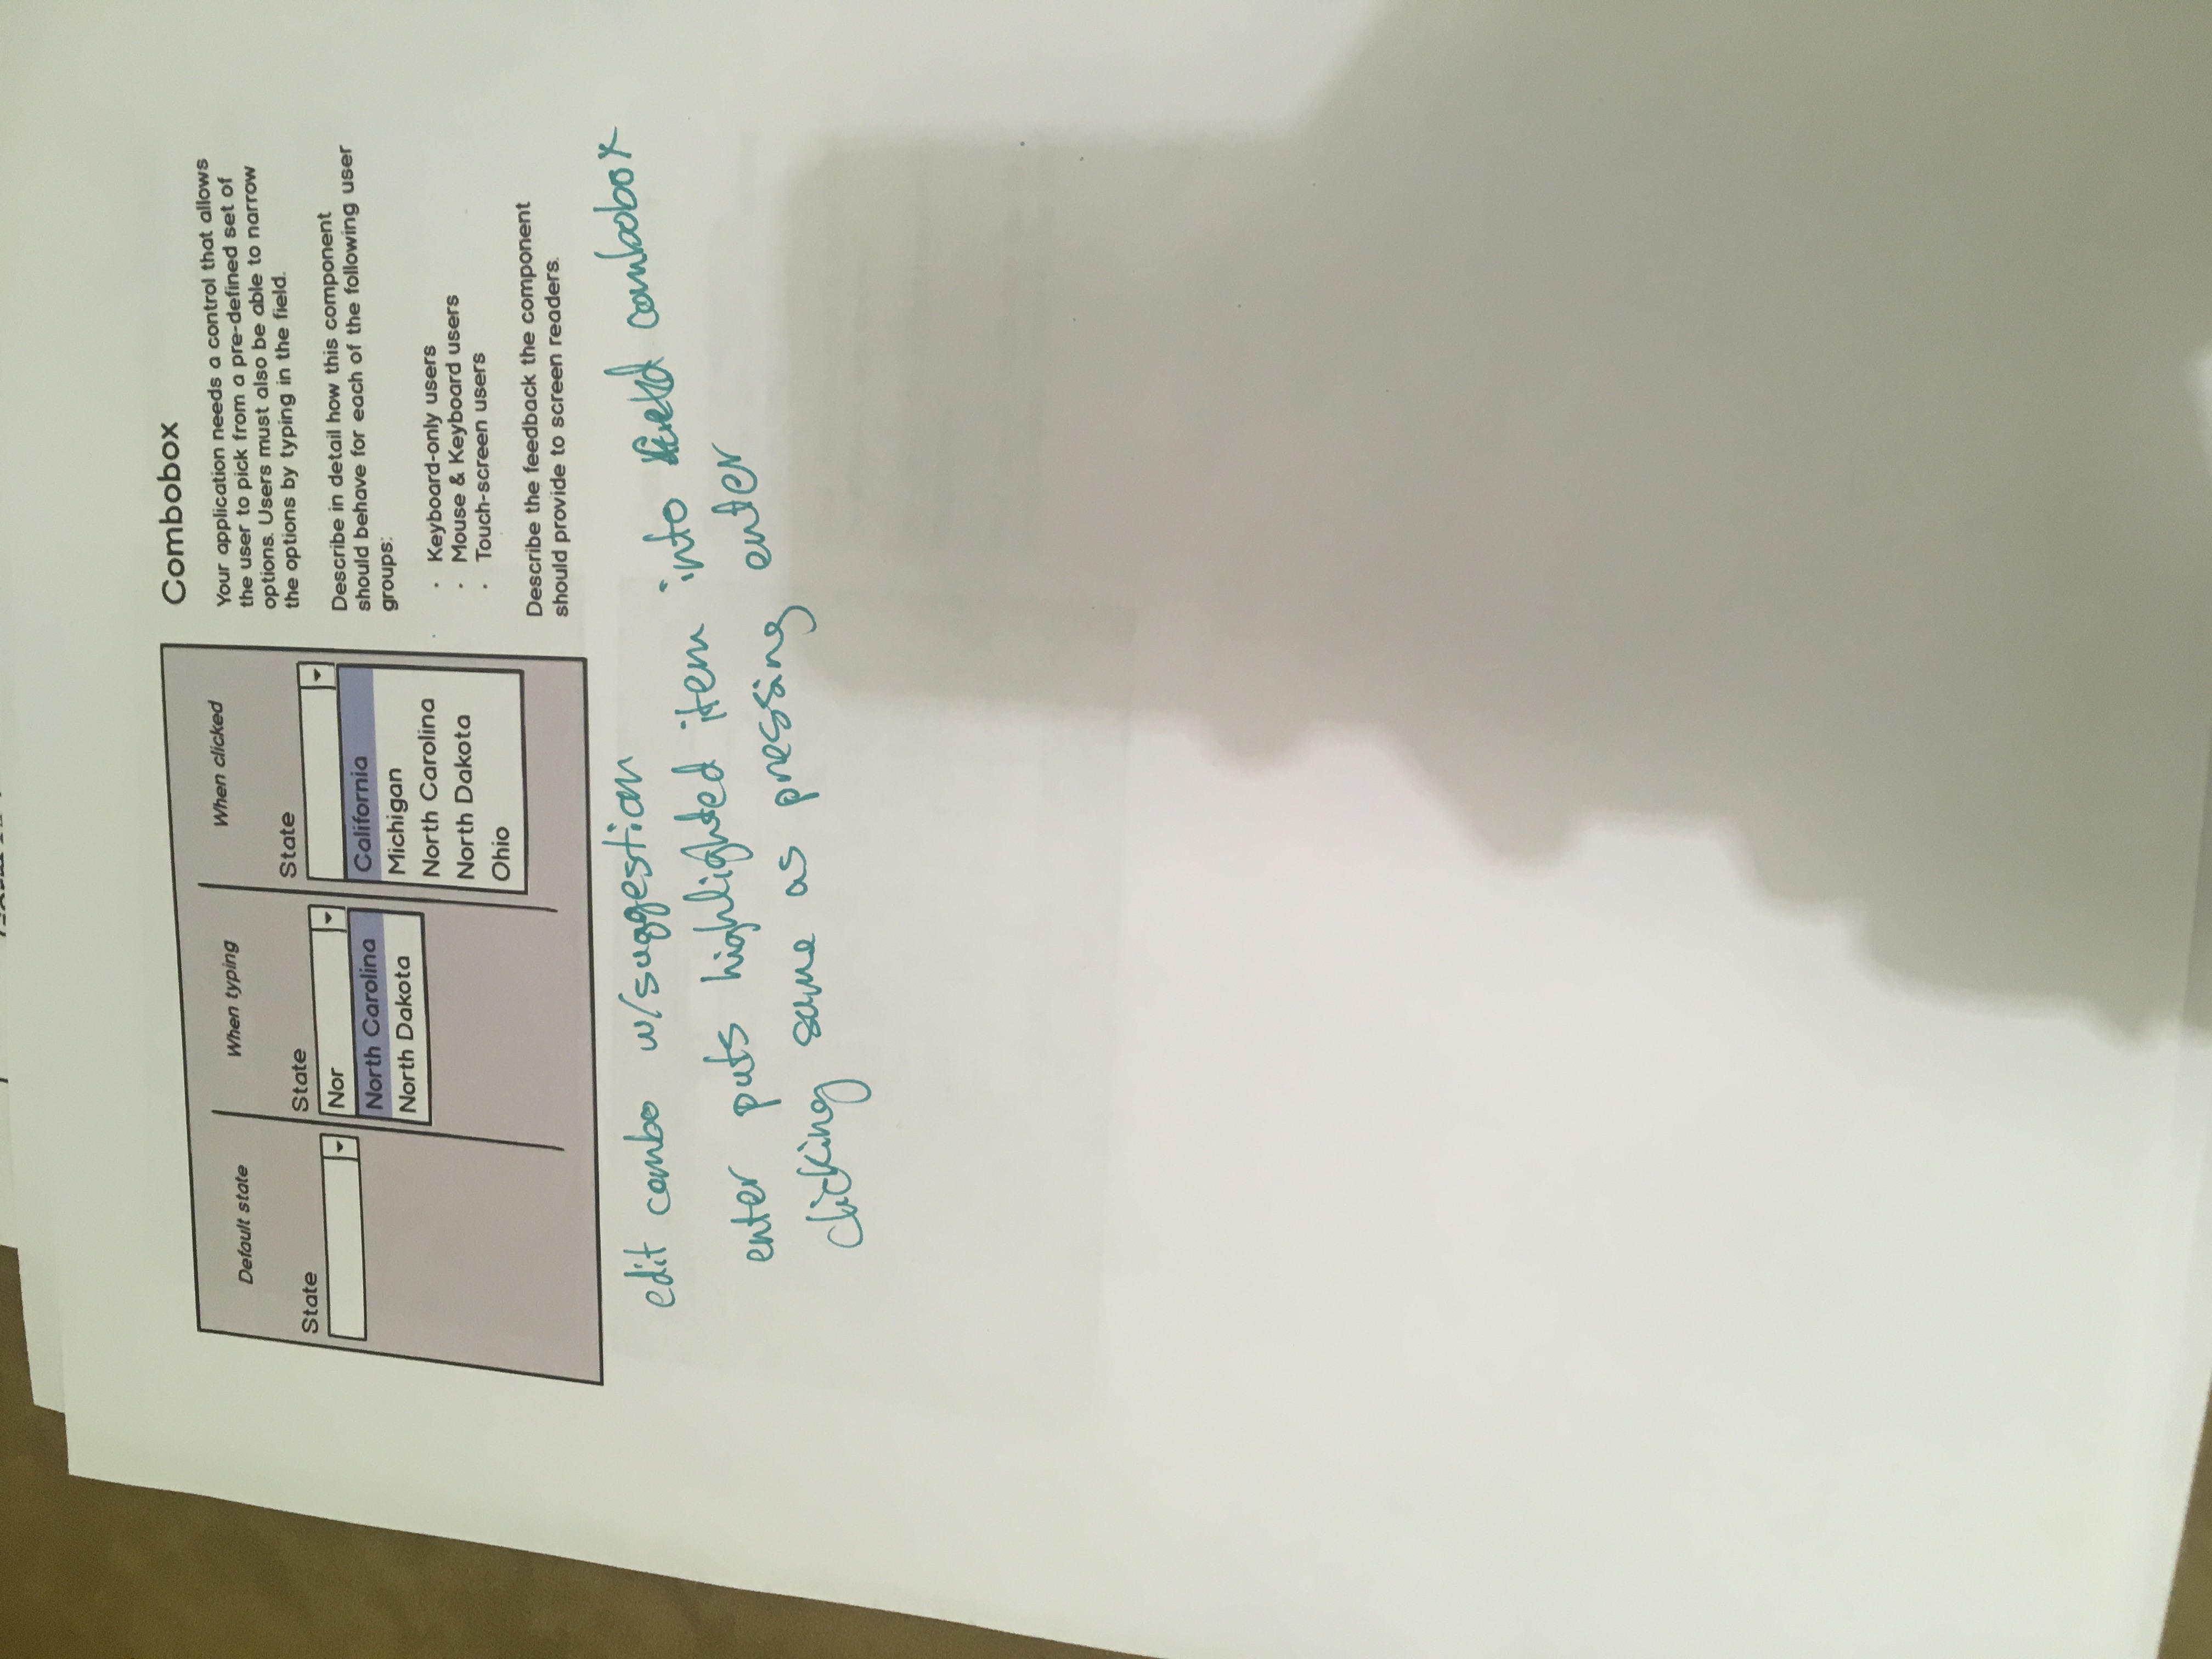 Default state
State
When typing
State
Nor
North Carolina
North Dakota
When clicked
State
California
Michigan
North Carolina
North Dakota
Ohio
Combobox
Your application needs a control that allows
the user to pick from a pre-defined set of
options. Users must also be able to narrow
the options by typing in the field.
Describe in detail how this component
should behave for each of the following user
groups:
· Keyboard-only users
· Mouse & Keyboard users
· Touch-screen users
Describe the feedback the component
should provide to screen readers.
edit combo w/suggestion
enter puts highlighted item into combobox
clicking same as pressing enter